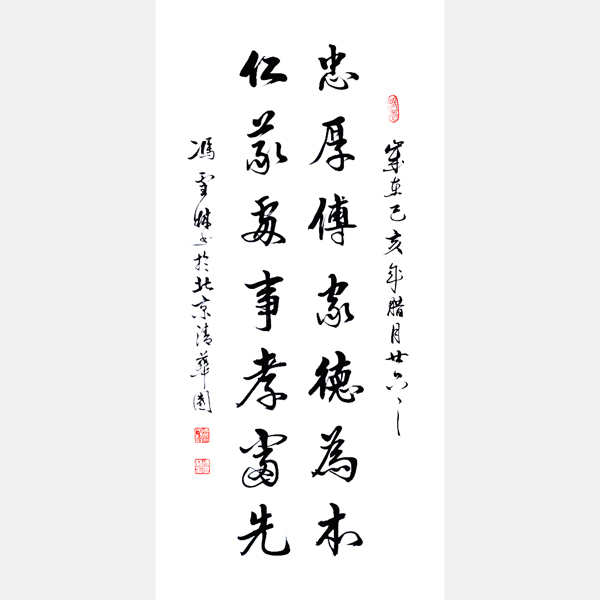 歲在己亥年腊月廿六
忠厚傳家德為本
仁義處事孝當先
馮雪书於北京清華園